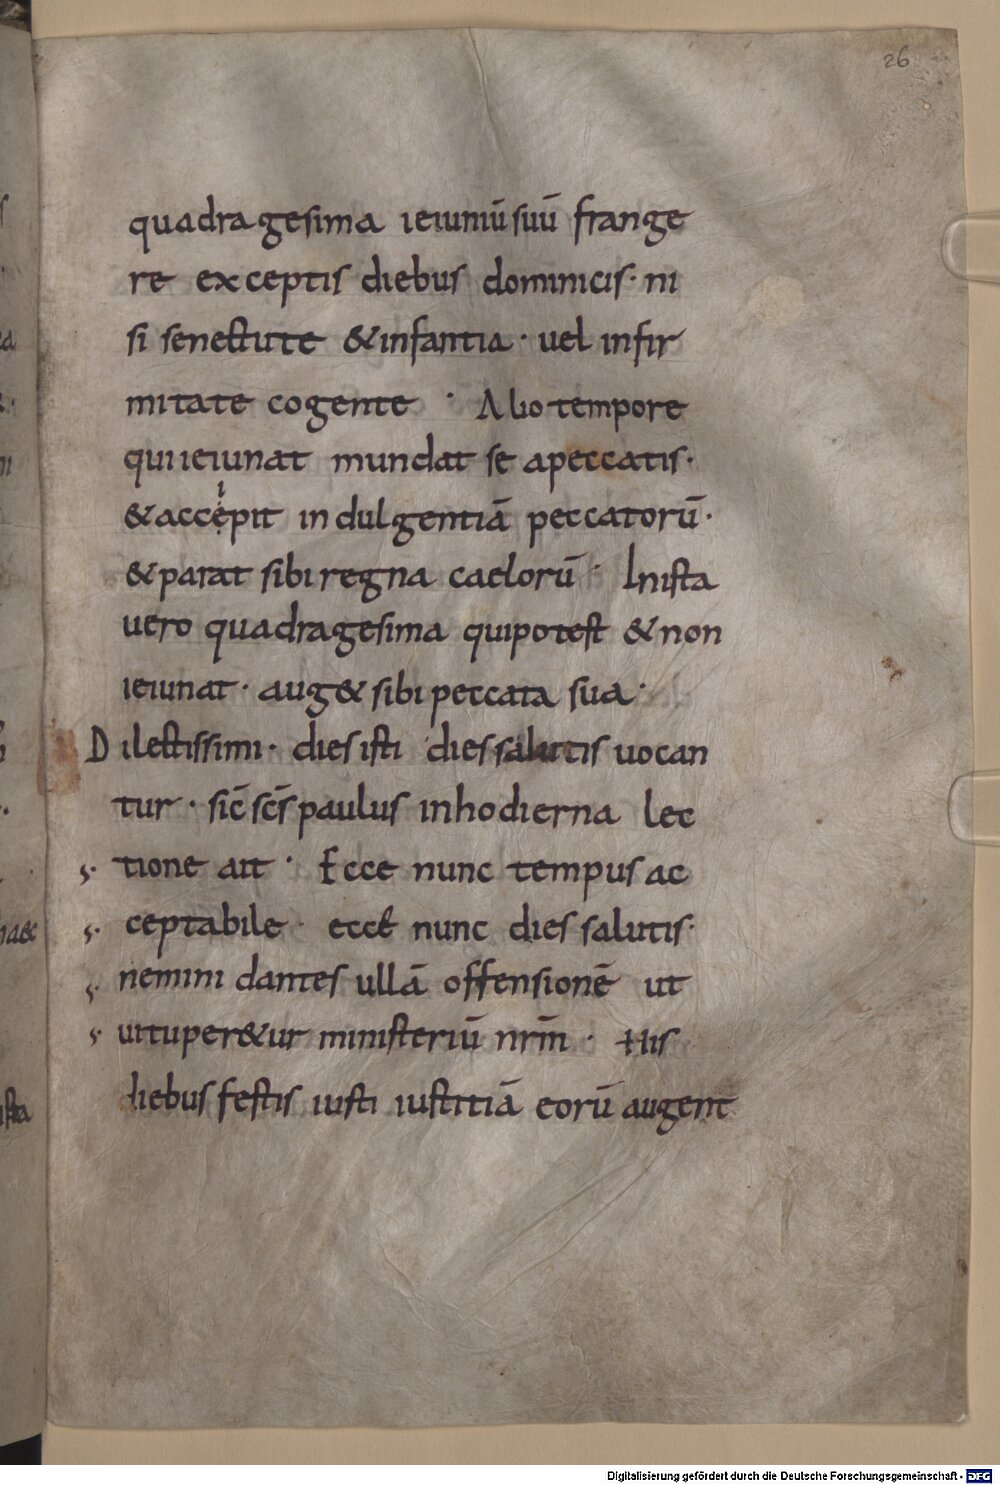 26
quadragesima ieiuniū suū frange
re exceptis diebus dominicis· ni
si senectute & infantia· uel infir
mitate cogente · Alio tempore
qui ieiunat mundat se a peccatis·
& accepit indulgentiā peccatorū·
& parat sibi regna caelorū· In ista
uero quadragesima qui potest & non
ieiunat· aug& sibi peccata sua·
Dilectissimi· dies isti dies salutis uocan
tur· sic̄ sc̄s paulus in hodierna lec
tione ait· Ecce nunc tempus ac
ceptabile· ecce nunc dies salutis·
nemini dantes ullā offensionē ut
uituper&ur ministeriū nrm̄· His
diebus festis iusti iustitiā eorū augent
Digitalisierung gefördert durch die Deutsche Forschungsgemeinschaft - DFG